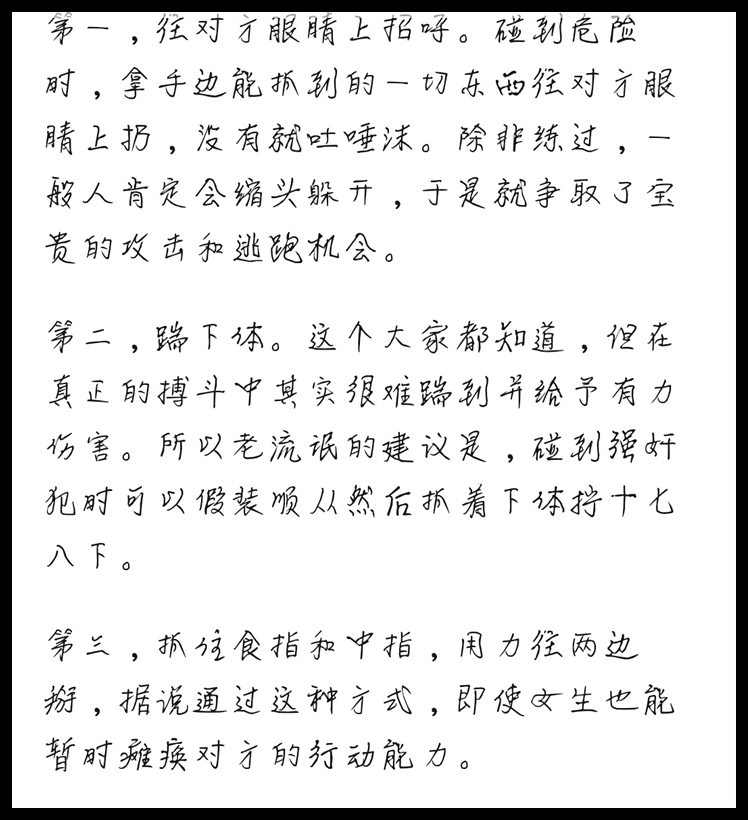 第一，往对方眼睛上招呼。碰到危险
时，拿手边能抓到的一切东西往对方眼
睛上扔，没有就吐唾沫。除非练过，一
般人肯定会缩头躲开，于是就争取了宝
贵的攻击和逃跑机会。
第二，踹下体。这个大家都知道，但在
真正的搏斗中其实很难踹到并给予有力
伤害。所以老流氓的建议是，碰到强奸
犯时可以假装顺从然后抓着下体拧十七
八下。
第三，抓住食指和中指，用力往两边
掰，据说通过这种方式，即使女生也能
暂时瘫痪对方的行动能力。